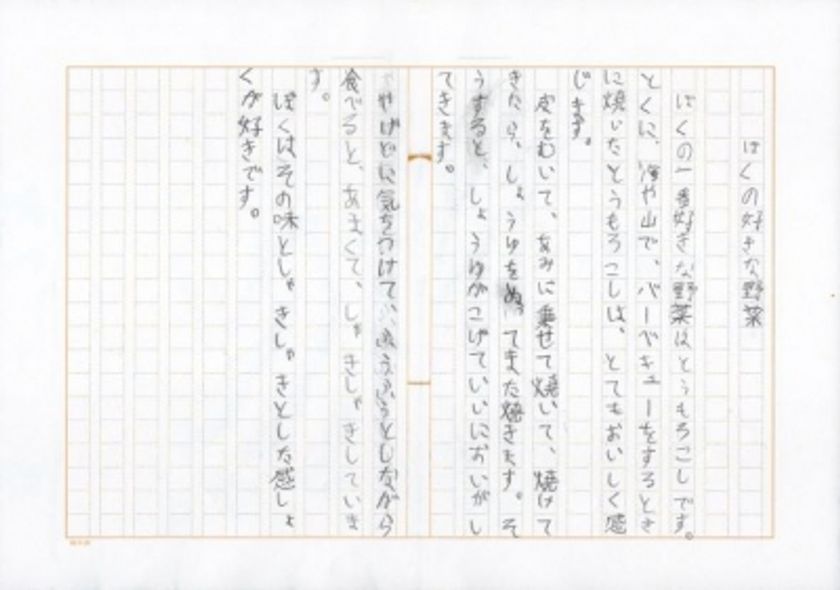 ぼくの好きな野菜
ぼくの一番好きな野菜はとうもろこしです。
とくに、海や山で、バーベキューをするとき
に焼いたとうもろこしは、とてもおいしく感
じます。
皮をむいて、あみに乗せて焼いて、焼けて
きたら、しょうゆをぬってまた焼きます。そ
うすると、しょうゆがこげていいにおいがし
てきます。
やけどに気をつけて、ふうふうとしながら
食べると、あまくて、しゃきしゃきしていま
す。
ぼくはその味としゃきしゃきとした感しょ
くが好きです。